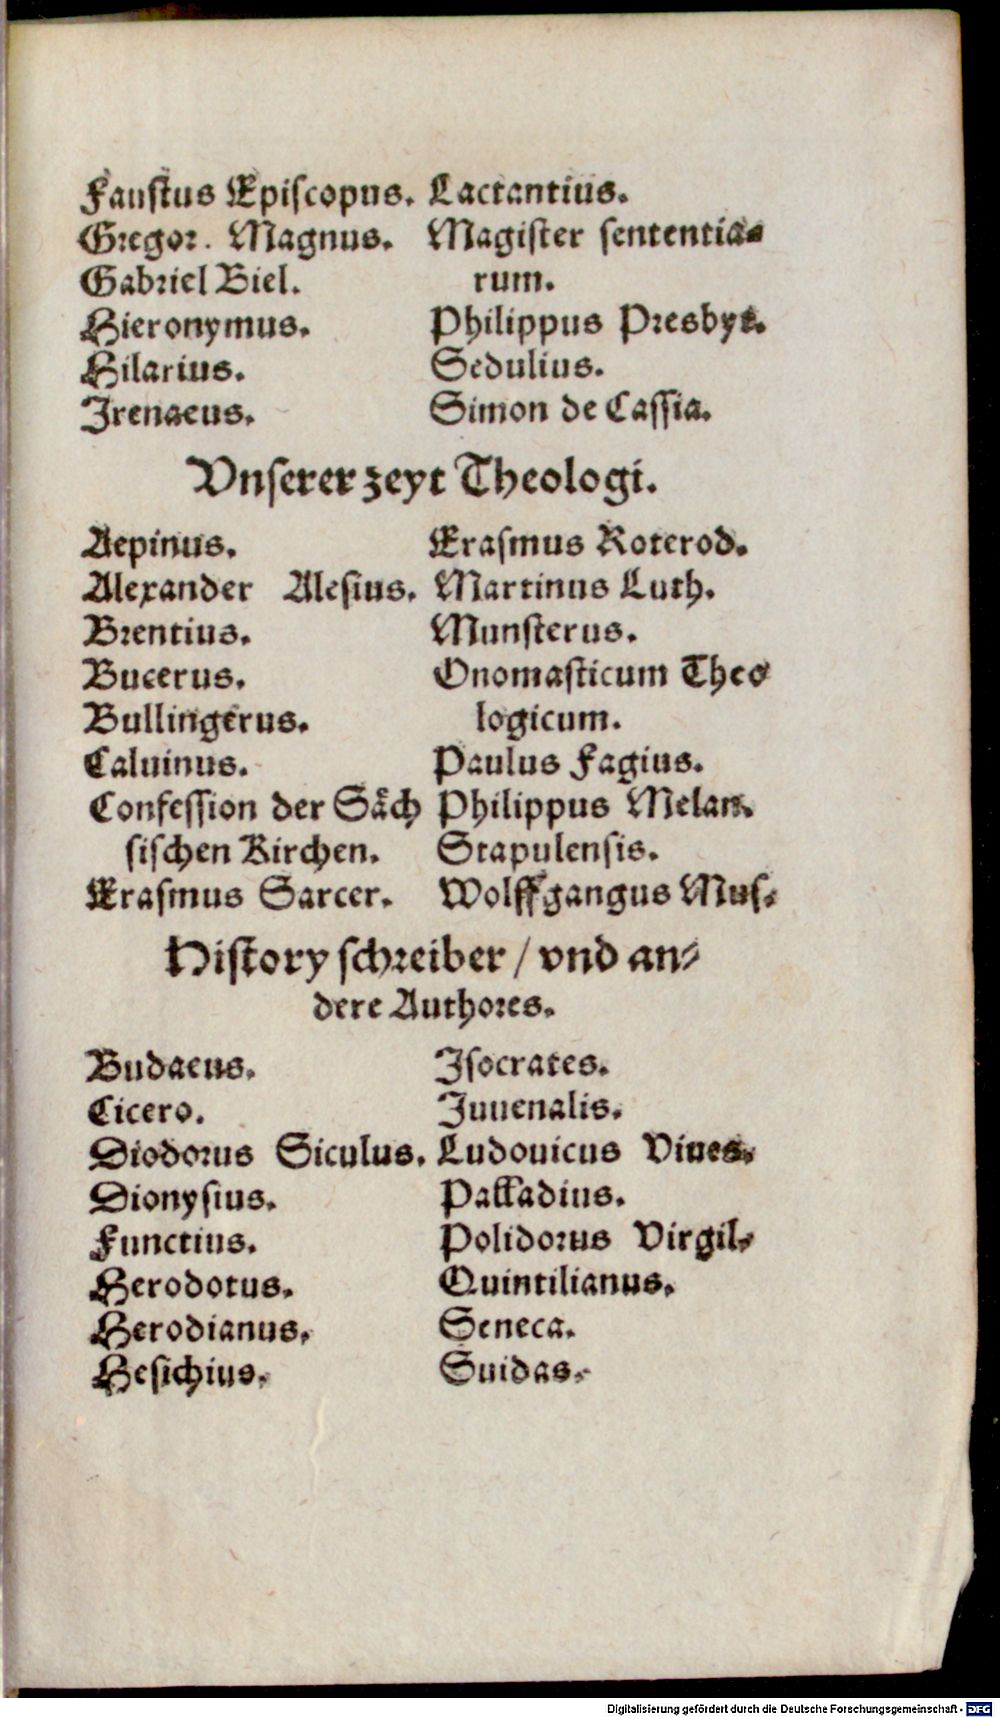 Faustus Episcopus.
Gregor. Magnus.
Gabriel Biel.
Hieronymus.
Hilarius.
Irenaeus.
Lactantius.
Magister sententia-
rum.
Philippus Presbyt.
Sedulius.
Simon de Cassia.
Vnserer zeyt Theologi.
Aepinus.
Alexander Alesius.
Brentius.
Bucerus.
Bullingerus.
Caluinus.
Confession der Säch
sischen Kirchen.
Erasmus Sarcer.
Erasmus Roterod.
Martinus Luth.
Munsterus.
Onomasticum Theo
logicum.
Paulus Fagius.
Philippus Melan.
Stapulensis.
Wolffgangus Mus.
History schreiber / vnd an-
dere Authores.
Budaeus.
Cicero.
Diodorus Siculus.
Dionysius.
Functius.
Herodotus.
Herodianus.
Hesichius.
Isocrates.
Iuuenalis.
Ludouicus Viues.
Palladius.
Polidorus Virgil.
Quintilianus.
Seneca.
Suidas.
Digitalisierung gefördert durch die Deutsche Forschungsgemeinschaft - DFG